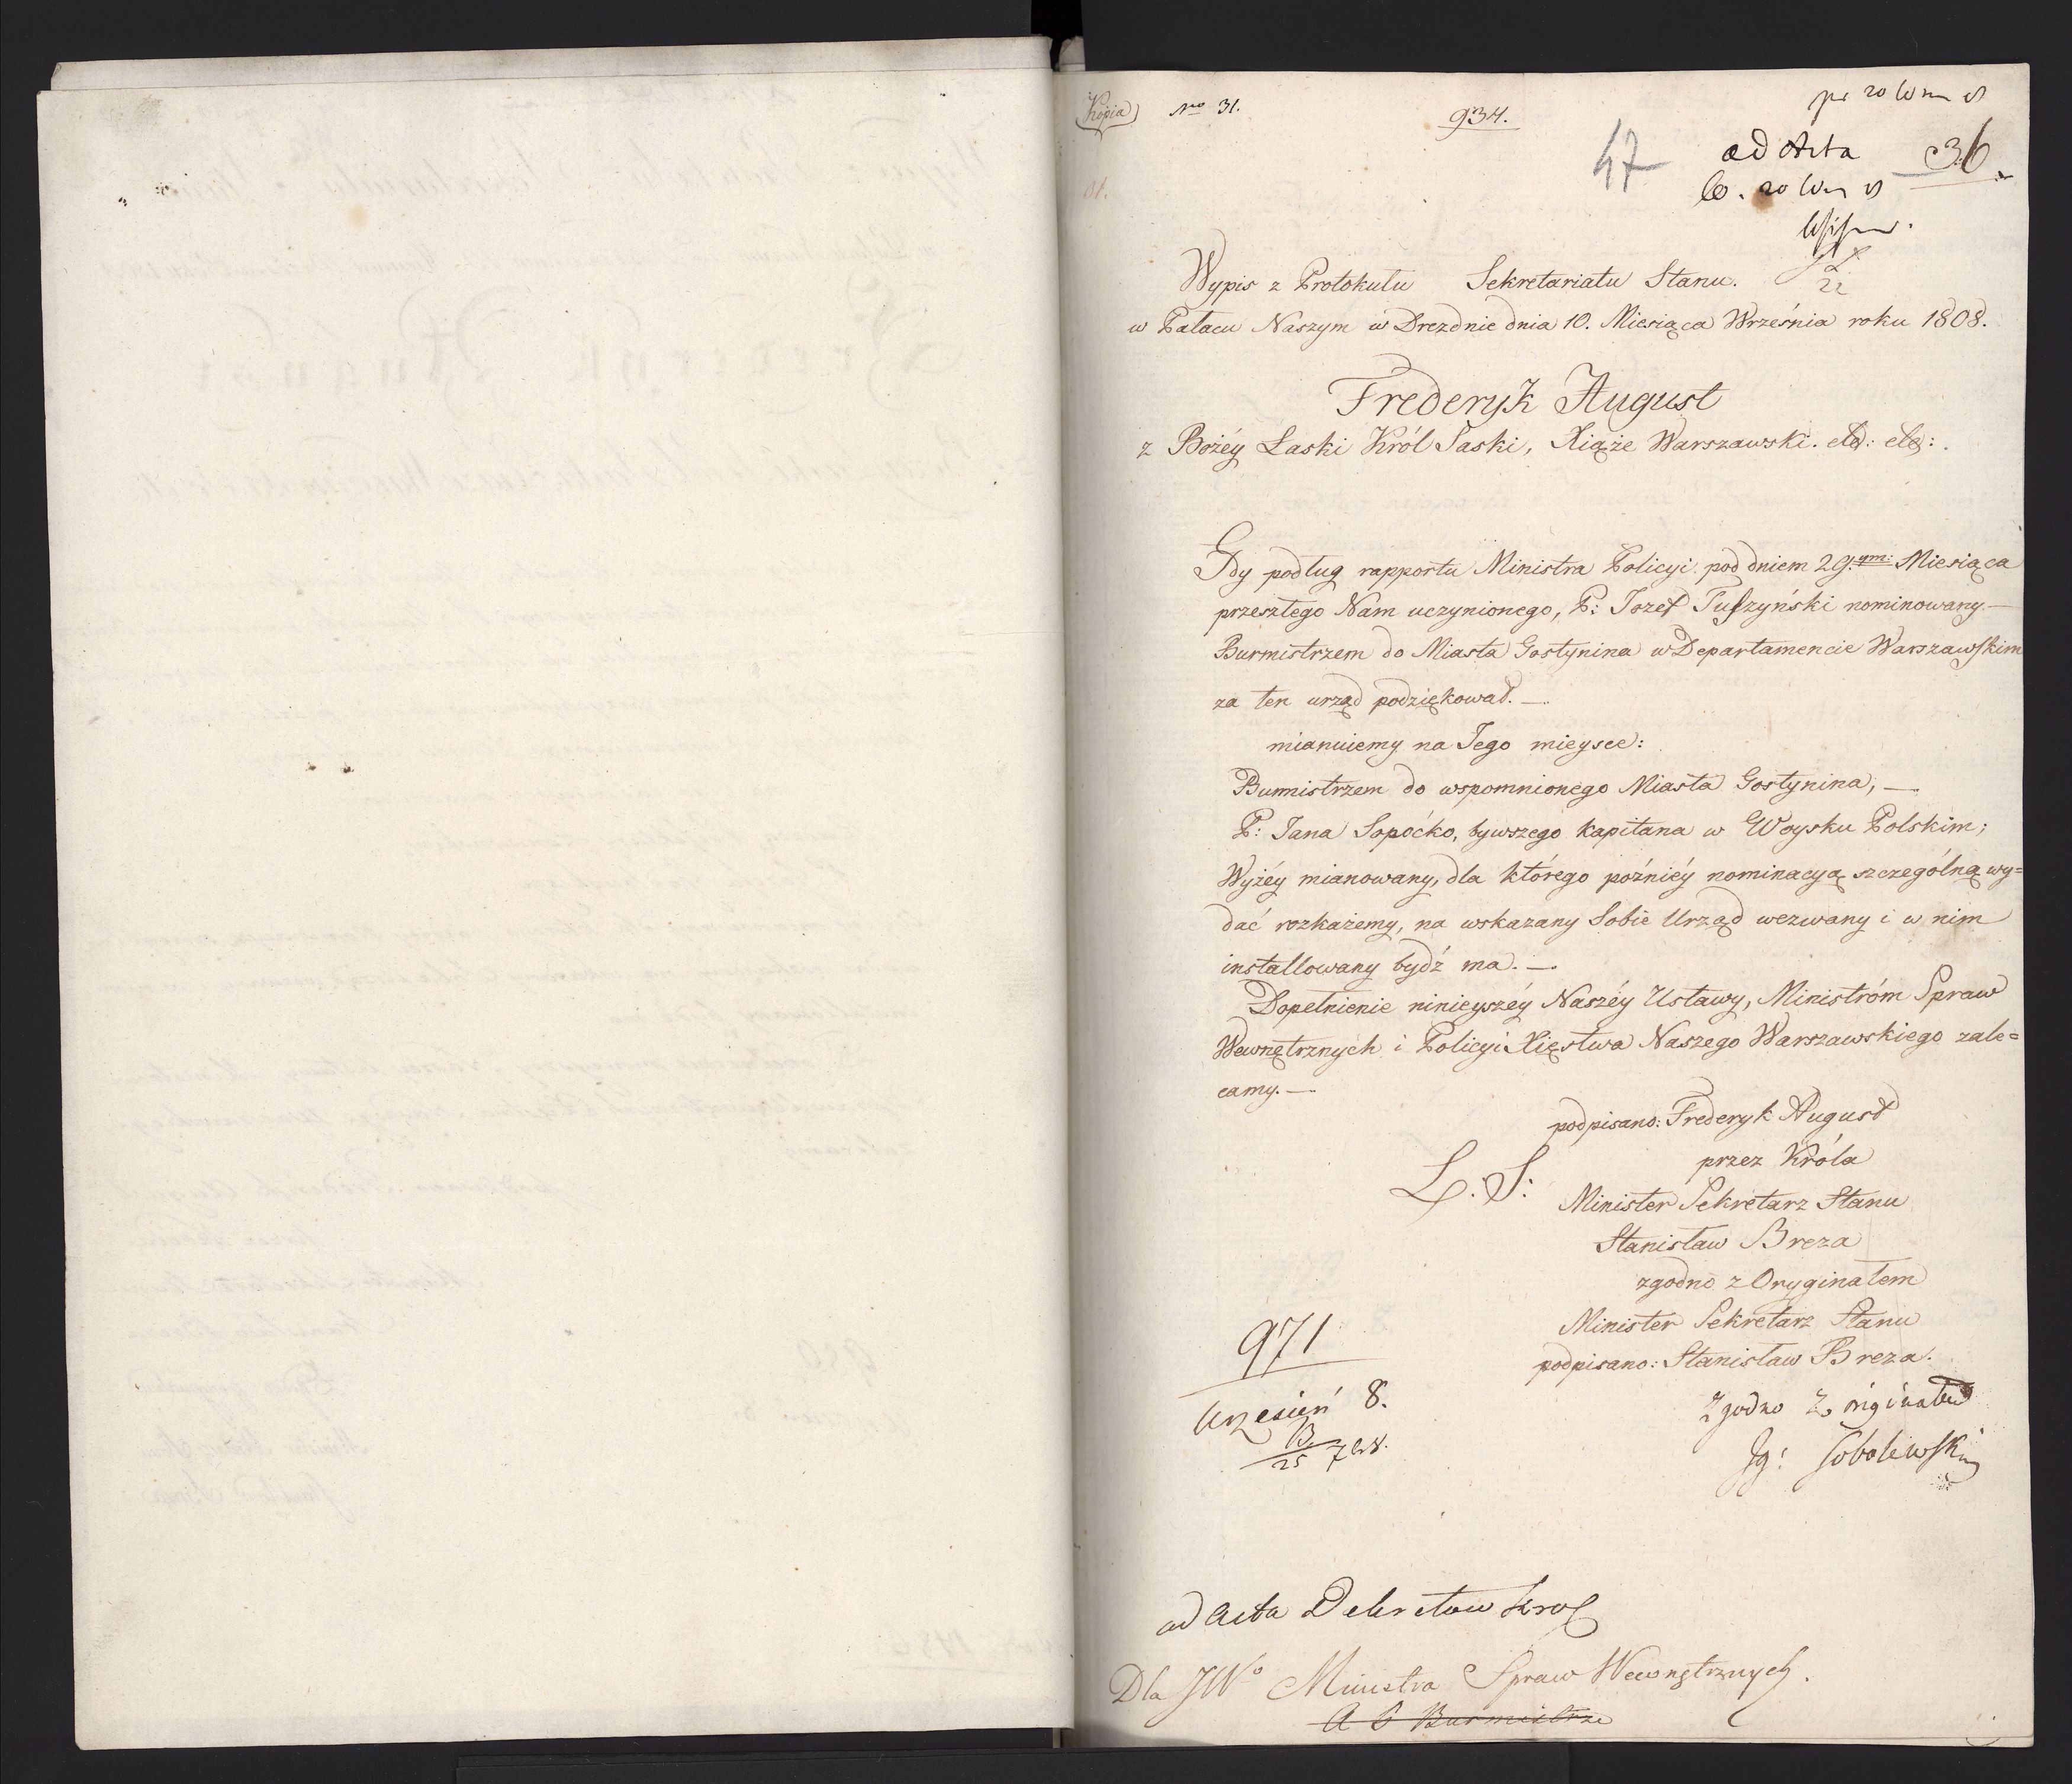 Kopia
Nro 31.
934.
47
ad Acta
36
Wypis z Protokułu Sekretariatu Stanu.
22
w Pałacu Naszym w Dreznie dnia 10. Miesiąca Września roku 1808.
Frederyk August
z Bożéy Łaski Król Saski, Xiąże Warszawski. etc: etc:.
Gdy podług rapportu Ministra Policyi pod dniem 29.ym: Miesiąca
przeszłego Nam uczynionego, P: Jozef Tuszyński nominowany —
Burmistrzem do Miasta Gostynina w Departamencie Warszawskim
za ten urząd podziękował. —
mianuiemy na Jego mieysce:
Burmistrzem do wspomnionego Miasta Gostynina, —
P: Jana Sopoćko, bywszego kapitana w Woysku Polskim;
Wyżéy mianowany, dla którego poźniéy nominacyą szczególną wy=
dać rozkażemy, na wskazany Sobie Urząd wezwany i w nim
installowany bydź ma. —
Dopełnienie ninieyszéy Naszéy Ustawy, Ministróm Spraw
Wewnętrznych i Policyi Xięstwa Naszego Warszawskiego zale=
camy. —
podpisano: Frederyk August
przez Króla
L. S:
Minister Sekretarz Stanu
Stanisław Breza
zgodno z Oryginałem
Minister Sekretarz Stanu
podpisano: Stanisław Breza.
971
Wrzesień 8.
25 7br.
Zgodno z originałem
Ig: Sobolewski
ad Acta Dekretow Krol
Dla JWo Ministra Spraw Wewnętrznych.
Burmistrze